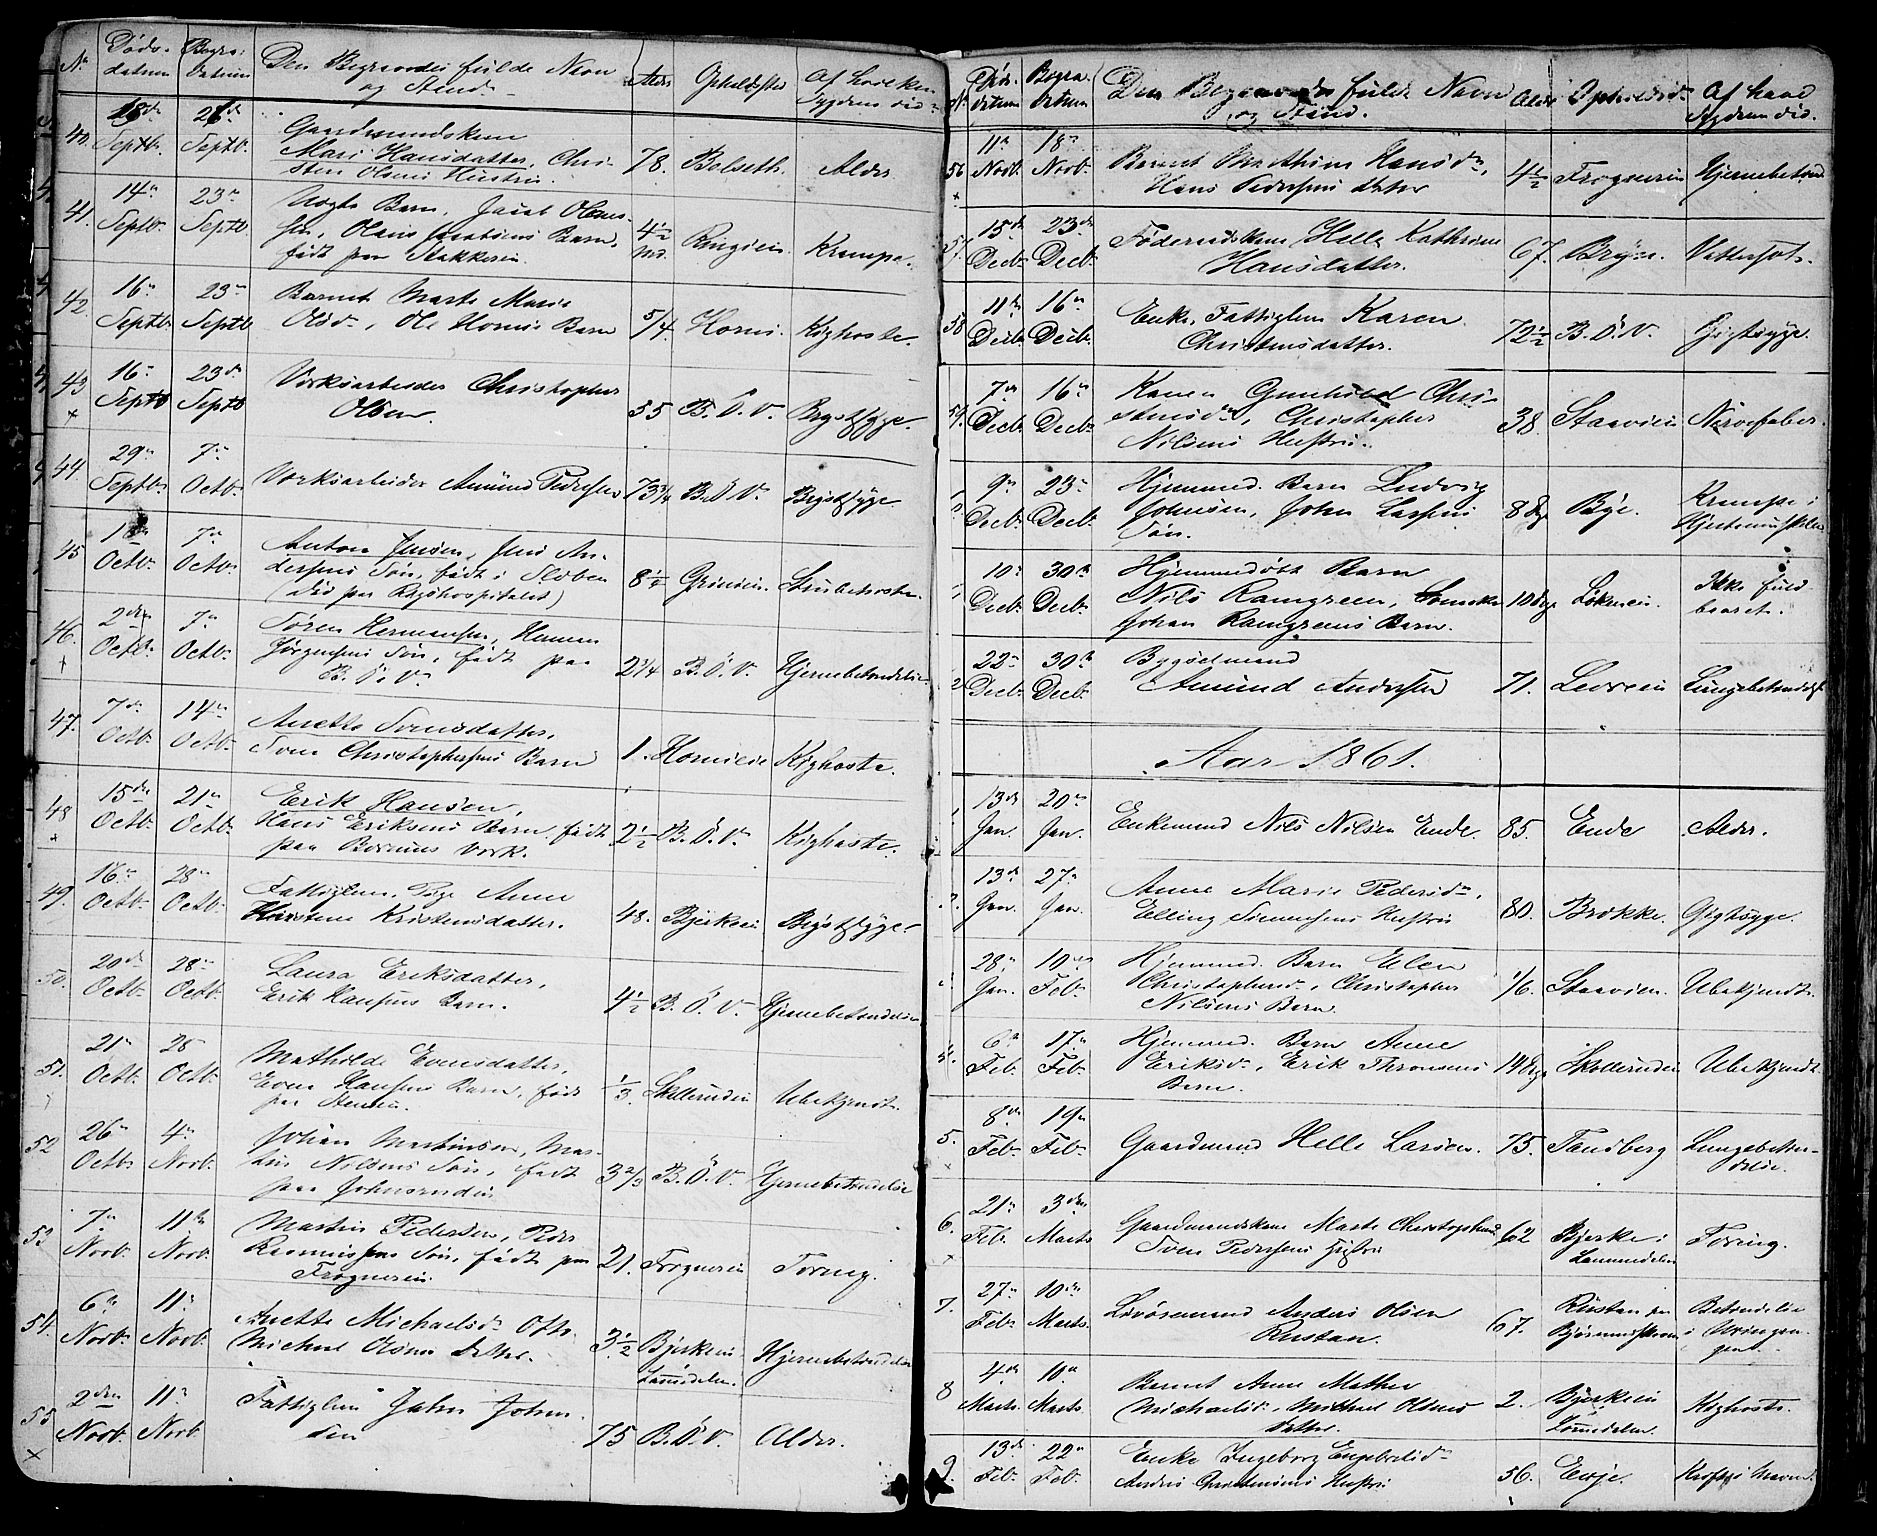 No Døds- datum Begra: datum Den Begravedes fulde Navn og Stand. Alder Opholdssted Af hvilken Sygdom død
40. 18de Septb. 26de Septb. Gaardmandskone
Mari Hansdatter, Chri-
sten Olsens Hustru. 78. Belseth. Alder
41. 14n Septb. 23n Septb. Barn, Jacob Olaus-
sen, Olaus Barn,
født paa Stakkerei. 4½ Mr. Krampe.
42. 16n Septb. 23n Septb. Barnet Marte Marie
Olsdr, Ole Horns Barn 5/4. Horni. Kighoste
43 x 16n Septb 23de Septb Værksarbeider Christopher
Olsen. 55 B. V. Brystsyge
44. 29n Septb. 7n Octb. Værksarbeider Amund Pedersen 73¾ B. V. Brystsyge
45 Octb. 7n Octb. Anton Jensen, Jens An-
dersens Søn, født i
(død paa Rigshospitalet) 8½ Strubehoste.
46. 2den Octb. 7n Octb. Søren Hermansen, Herman
Jørgensens Søn, født paa
B. V. 2¼ B. V. Hjernebetændelse
47. 7de Octb. 14n Octb. Anette Svensdatter,
Sven Christophersens Barn 1. Hornieie Kighoste.
48 15de Octb. 21n Octb. Erik Hansen,
Hans Eriksens Barn, født
paa Bærums Værk. 2½ B. V. Kighoste.
49. 16n Octb. 28n Octb. Fattiglem, Pige Anne
Kirstine Kristensdatter. 48. Bjerkeei Brystsyge
50. 20de Octb. 28n Octb. Laura Eriksdatter,
Erik Hansens Barn. 4½ B. V. Hjernebetændelse
51. 21n Octb. 28 Octb. Mathilde Evensdatter,
Even Hansens Barn, født
paa 1/3. Skollerudei Ubekjendt.
52 26n Octb 4n Novb. Johan Martinsen, Mar-
tin Nilsens Søn, født
paa Johnsrudei 3 2/3 B. V. Hjernebetændelse
53 7n Novb. 11te Novb. Martin Pedersen, Peder
Rasmussens Søn, født paa
Frognerei. 21. Frognerei Tæring.
54. 6te Novb. 11n Novb. Anette Michaelsdr
Michael Olsens datter. 3½ Bjerkeeie
Lommedalen. Hjernebetændelse
55 x 2den Novb. 11n Novb Fattiglem John John-
sen 75 B. V. Alder.
No Døds- datum Begra. datum Den Begravedes fulde Navn og Stand. Alder Opholdsst. Af hvad Sygdom død.
56 x 11n Novb. 18n Novb. Barnet Mathine Hansdr,
Hans Pedersens datter 4½ Frognerei Hjernebetænd
57. 15de Decb. 23de Decb. Føderaadskone Helle Kathrine
Hansdatter. 67. Bryn. Vattersot.
58 11te Decb. 16n Decb. Enke, Fattiglem Karen
Christensdatter. 72½ B. V. Gigtsyge.
59. 7de Decb. 16n Decb. Konen Gunhild Chri-
stensdr, Christopher
Nilsens Hustru. 38. Staavien Nervefeber.
9n Decb. 23n Decb. Hjemmed. Barn Ludvig
Johnsen, John Larsens
Søn. 8 dge Bye. Krampe i
Hjertemusklen
10n Decb. 30te Decb. Hjemmedøbt Barn
Nils Ramgreen, Svenske
Johan Ramgreens Barn. 10 dge Løkeneie. Ikke fuld-
baaret.
22n Decb. 30te Decb. Bygselmand
Amund Andersen 71. Lungebetændelse
Aar 1861.
1 13de Jan. 20n Jan. Enkemand Nils Nilsen Ende. 85. Ende Alder.
2. 13de Jan. 27n Jan. Anne Marie Pedersdr,
Elling Simensens Hustru 80. Brække. Gigtsyge.
28n Jan. 10n Feb. Hjemmed. Barn Elen
Christophersdr, Christopher
Nilsens Barn. 1/6. Staavien. Ubekjendt.
4. 6te Feb. 17n Feb. Hjemmed. Barn Anne
Eriksdr, Erik Thronsens
Barn. 14 dge Skollerudei Ubekjendt.
5. 8de Feb. 19n Feb. Gaardmand Helle Larsen. 75. Tandberg Lungebetæn-
delse.
6. x 21n Feb. 3den Marts Gaardmandskone Marte Christophersd
Sven Pedersens Hustru 62 Bjerke i
Lommedalen Tæring.
7. 27n Feb. 10de Marts. Anders Olsen
Rustan. 67. Rustan paa
Betændelse
i Uringan-
gene.
8 4de Marts. 10n Marts. Barnet Anne Mathea
Michaelsdr, Michael Olsens
datter. 2. Bjerkeeie
Lommedalen. Kighoste.
9. 13de Feb. 22n Feb. Enke Ingeborg Engebretsdr
Anders Christensens Hustru 56. Evje. Kræft i Maven